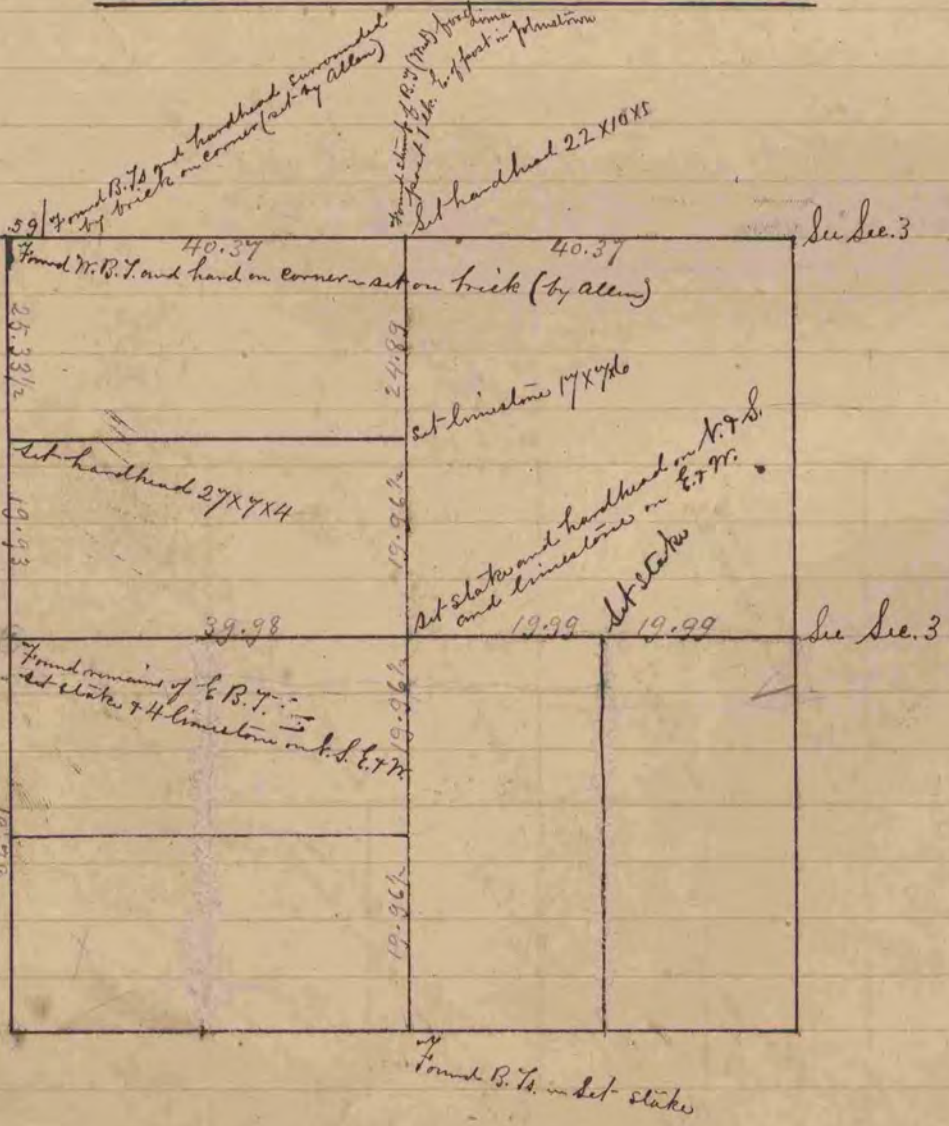 Found B.Ts and hardhead surrounded
by brick on corner (set by Allen)
Found stump of B.T. (Med) post Lima
post 1 lk. E. of post in Johnstown
Set hardhead 22X10X5
59
40.37
40.37
See Sec. 3
Found W.B.T. and hard on corner set on brick (by Allen)
25.33½
24.89
Set limestone 17X7X6
Set hardhead 27X7X4
19.93
19.96½
Set stake and hardhead on N. & S.
and limestone on E. & W.
Set stake
39.98
19.99
19.99
See Sec. 3
Found remains of E B.T.
set stake & 4 limestone on N. S. E. & W.
19.96½
19.96½
Found B.Ts. Set stake